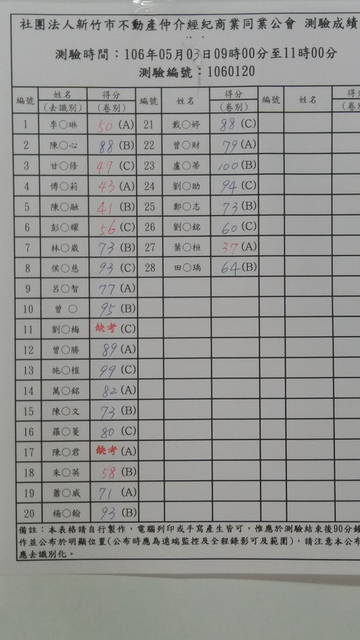 社團法人新竹市不動產仲介經紀商業同業公會 測驗成績
測驗時間：106年05月03日09時00分至11時00分
測驗編號：1060120
編號 姓名(去識別) 得分(卷別) 編號 姓名 得分(卷別) 編號 姓名 得分(卷別)
1 李○琳 50(A) 21 戴○婷 88(C)
2 陳○心 88(B) 22 曾○財 79(A)
3 甘○修 49(C) 23 盧○蓉 100(B)
4 傅○莉 43(A) 24 劉○助 94(C)
5 陳○融 41(B) 25 鄭○志 73(B)
6 彭○耀 56(C) 26 劉○銘 60(C)
7 林○崴 73(B) 27 葉○桓 37(A)
8 侯○慈 93(C) 28 田○瑀 64(B)
9 呂○智 77(A)
10 曾○ 95(B)
11 劉○梅 缺考(C)
12 曾○勝 89(A)
13 施○愷 99(C)
14 萬○銘 82(A)
15 陳○文 73(B)
16 羅○蔓 80(C)
17 陳○君 缺考(A)
18 朱○英 58(B)
19 蕭○威 71(A)
20 楊○翰 93(B)
備註：本表格請自行製作，電腦列印或手寫產生皆可，惟應於測驗結束後90分鐘
作並公布於明顯位置(公布時應為遠端監控及全程錄影可及範圍)，請注意本公布
應去識別化。